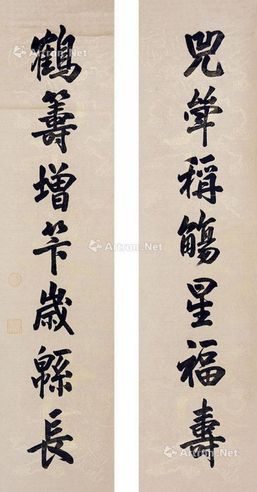 兕斝稱觴星福壽
鶴籌增笇歲緜長
Artron.Net
Artron.Net
Artron.Net
Artron.Net